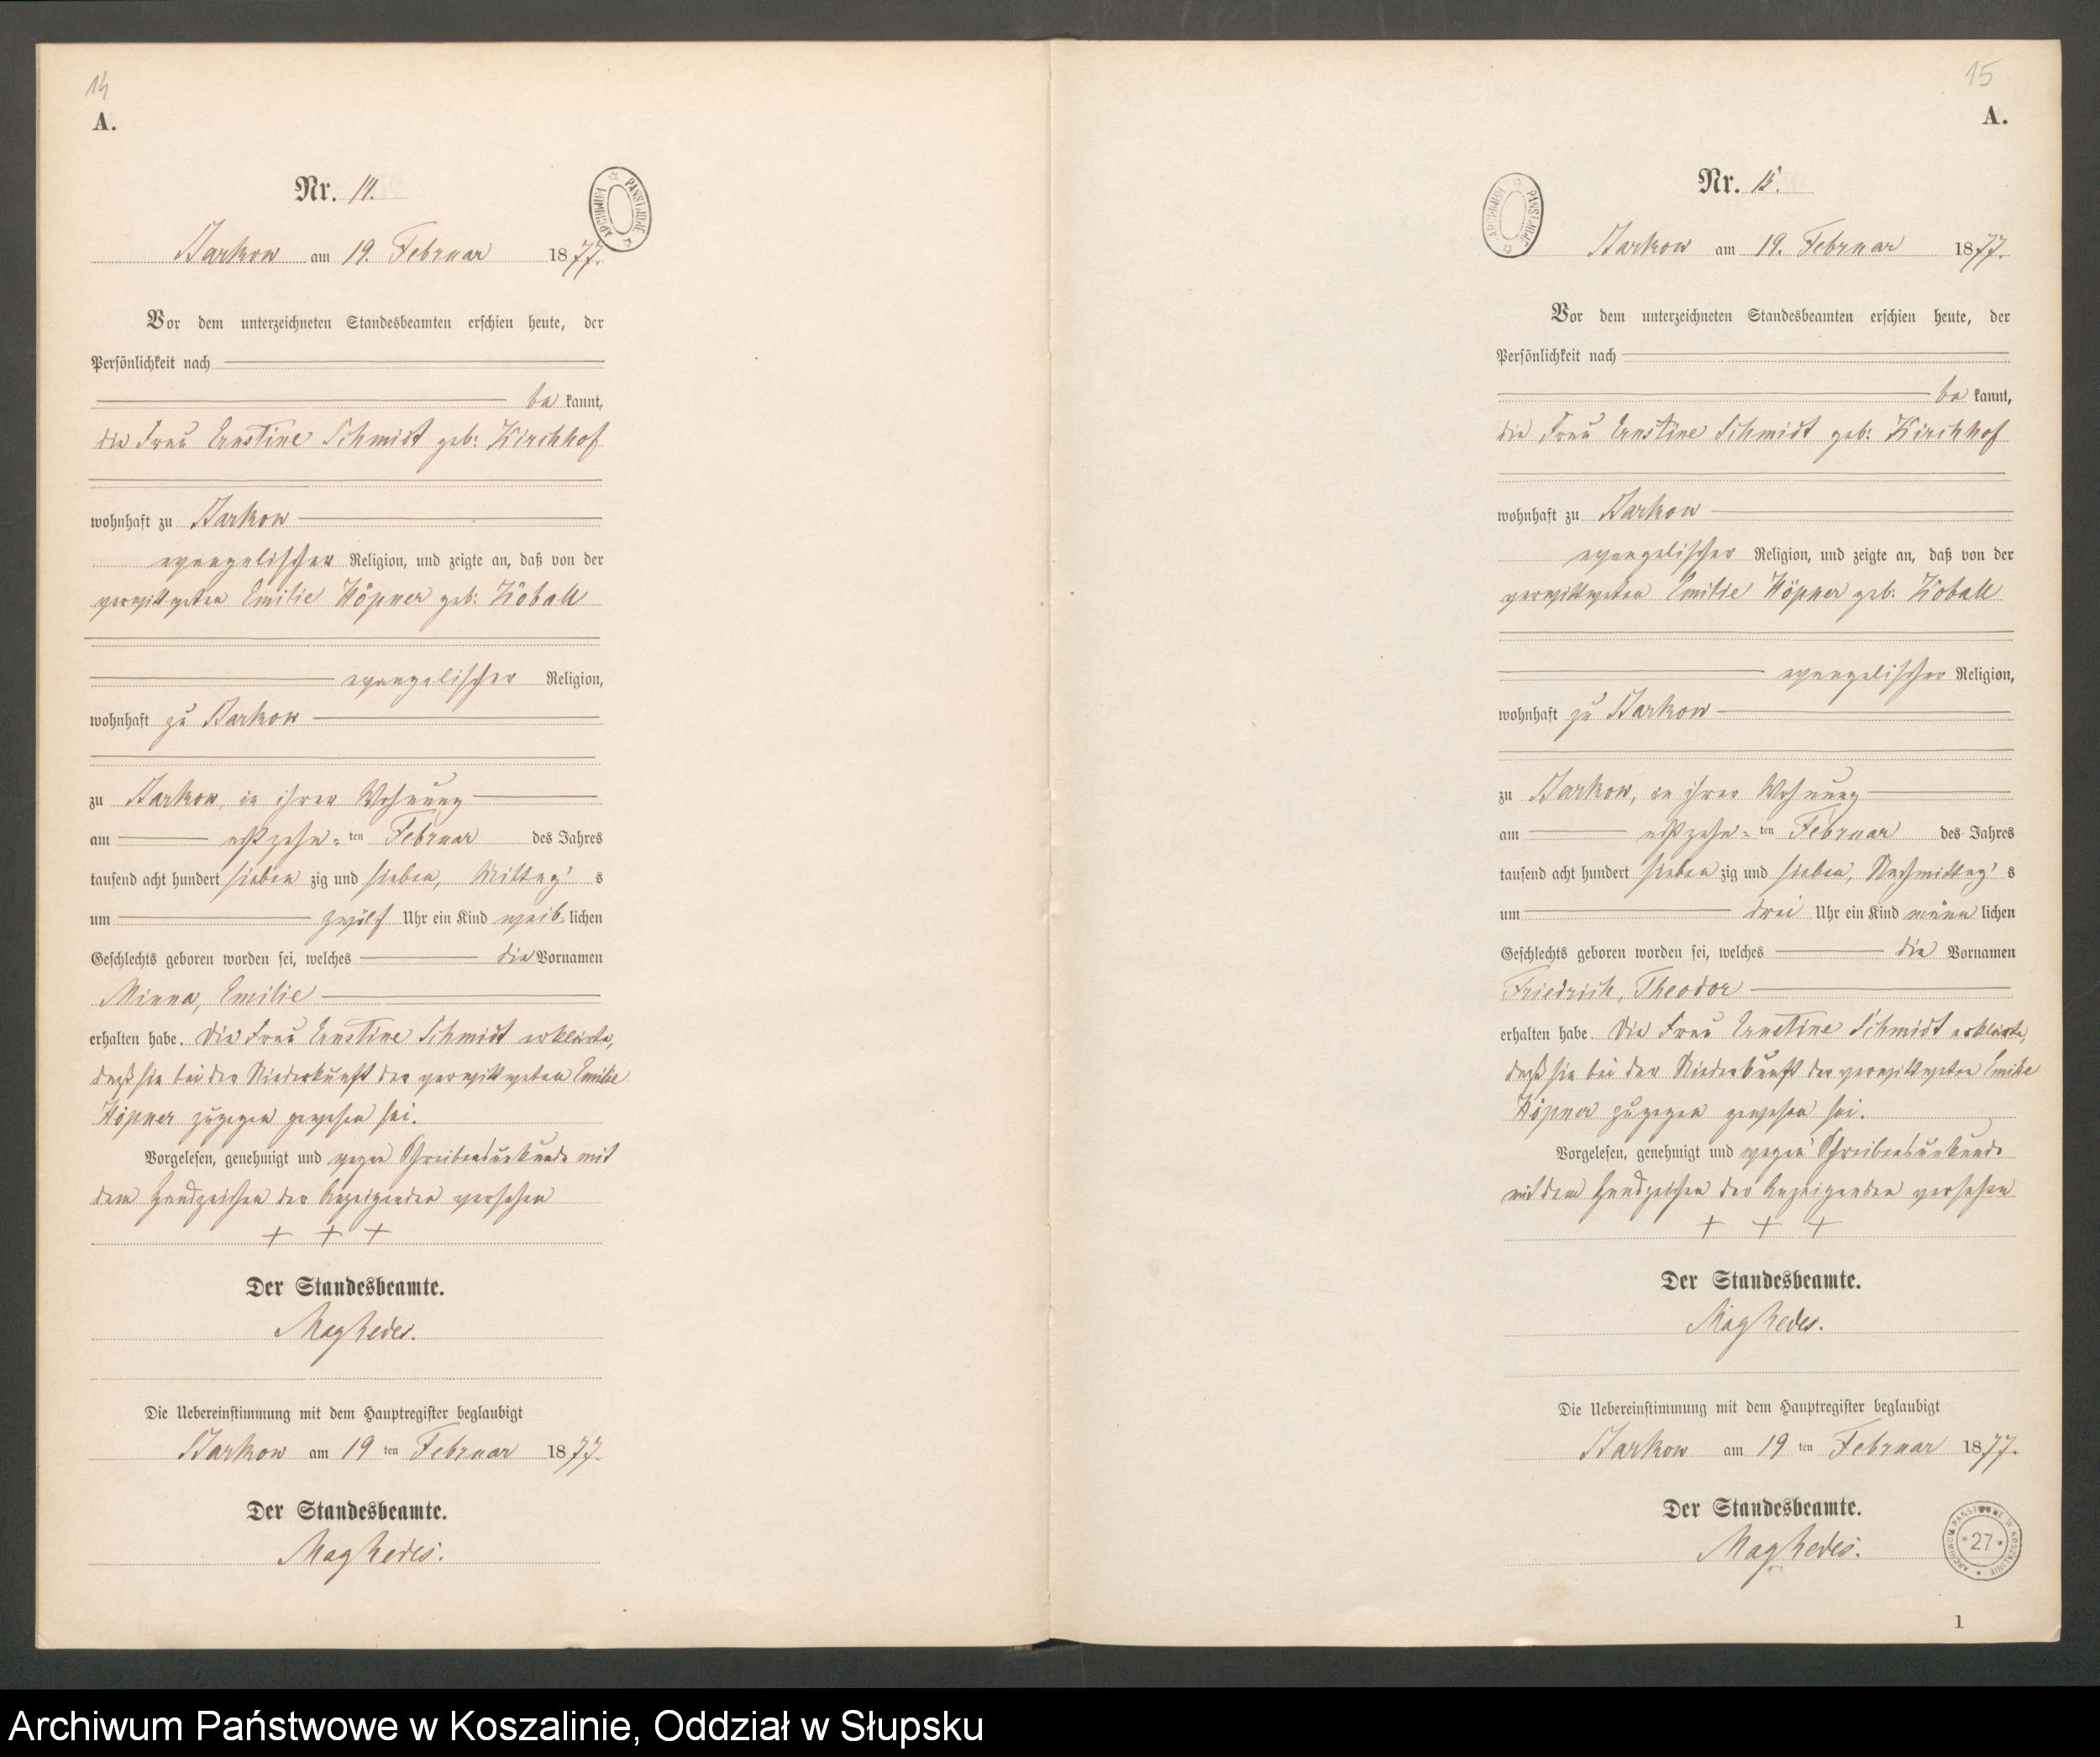 14
A.
Nr. 14.
ARCHIWUM PAŃSTWOWE
Starkow am 19. Februar 1877.
Vor dem unterzeichneten Standesbeamten erschien heute, der
Persönlichkeit nach
be kannt,
die Frau Ernstine Schmidt geb: Kirchhof
wohnhaft zu Starkow
evangelischer Religion, und zeigte an, daß von der
verwittweten Emilie Höpner geb: Koball
evangelischer Religion,
wohnhaft zu Starkow
zu Starkow, in ihrer Wohnung
am achtzehn-ten Februar des Jahres
tausend acht hundert sieben zig und sieben, Mittag's
um zwölf Uhr ein Kind weib-lichen
Geschlechts geboren worden sei, welches die Vornamen
Minna, Emilie
erhalten habe. Die Frau Ernstine Schmidt erklärte,
daß sie bei der Niederkunft der verwittweten Emilie
Höpner zugegen gewesen sei.
Vorgelesen, genehmigt und wegen Schreibensunkunde mit
dem Handzeichen der Anzeigenden versehen
+ + +
Der Standesbeamte.
Die Uebereinstimmung mit dem Hauptregister beglaubigt
Starkow am 19 ten Februar 1877.
Der Standesbeamte.
15
A.
Nr. 15.
ARCHIWUM PAŃSTWOWE
Starkow am 19. Februar 1877.
Vor dem unterzeichneten Standesbeamten erschien heute, der
Persönlichkeit nach
be kannt,
die Frau Ernstine Schmidt geb: Kirchhof
wohnhaft zu Starkow
evangelischer Religion, und zeigte an, daß von der
verwittweten Emilie Höpner geb: Koball
evangelischer Religion,
wohnhaft zu Starkow
zu Starkow, in ihrer Wohnung
am achtzehn-ten Februar des Jahres
tausend acht hundert sieben zig und sieben, Nachmittag's
um drei Uhr ein Kind männ lichen
Geschlechts geboren worden sei, welches die Vornamen
Friedrich, Theodor
erhalten habe. Die Frau Ernstine Schmidt erklärte,
daß sie bei der Niederkunft der verwittweten Emilie
Höpner zugegen gewesen sei.
Vorgelesen, genehmigt und wegen Schreibensunkunde
mit dem Handzeichen der Anzeigenden versehen
+ + +
Der Standesbeamte.
Die Uebereinstimmung mit dem Hauptregister beglaubigt
Starkow am 19 ten Februar 1877.
Der Standesbeamte.
ARCHIWUM PAŃSTWOWE W KOSZALINIE
27
1
Archiwum Państwowe w Koszalinie, Oddział w Słupsku